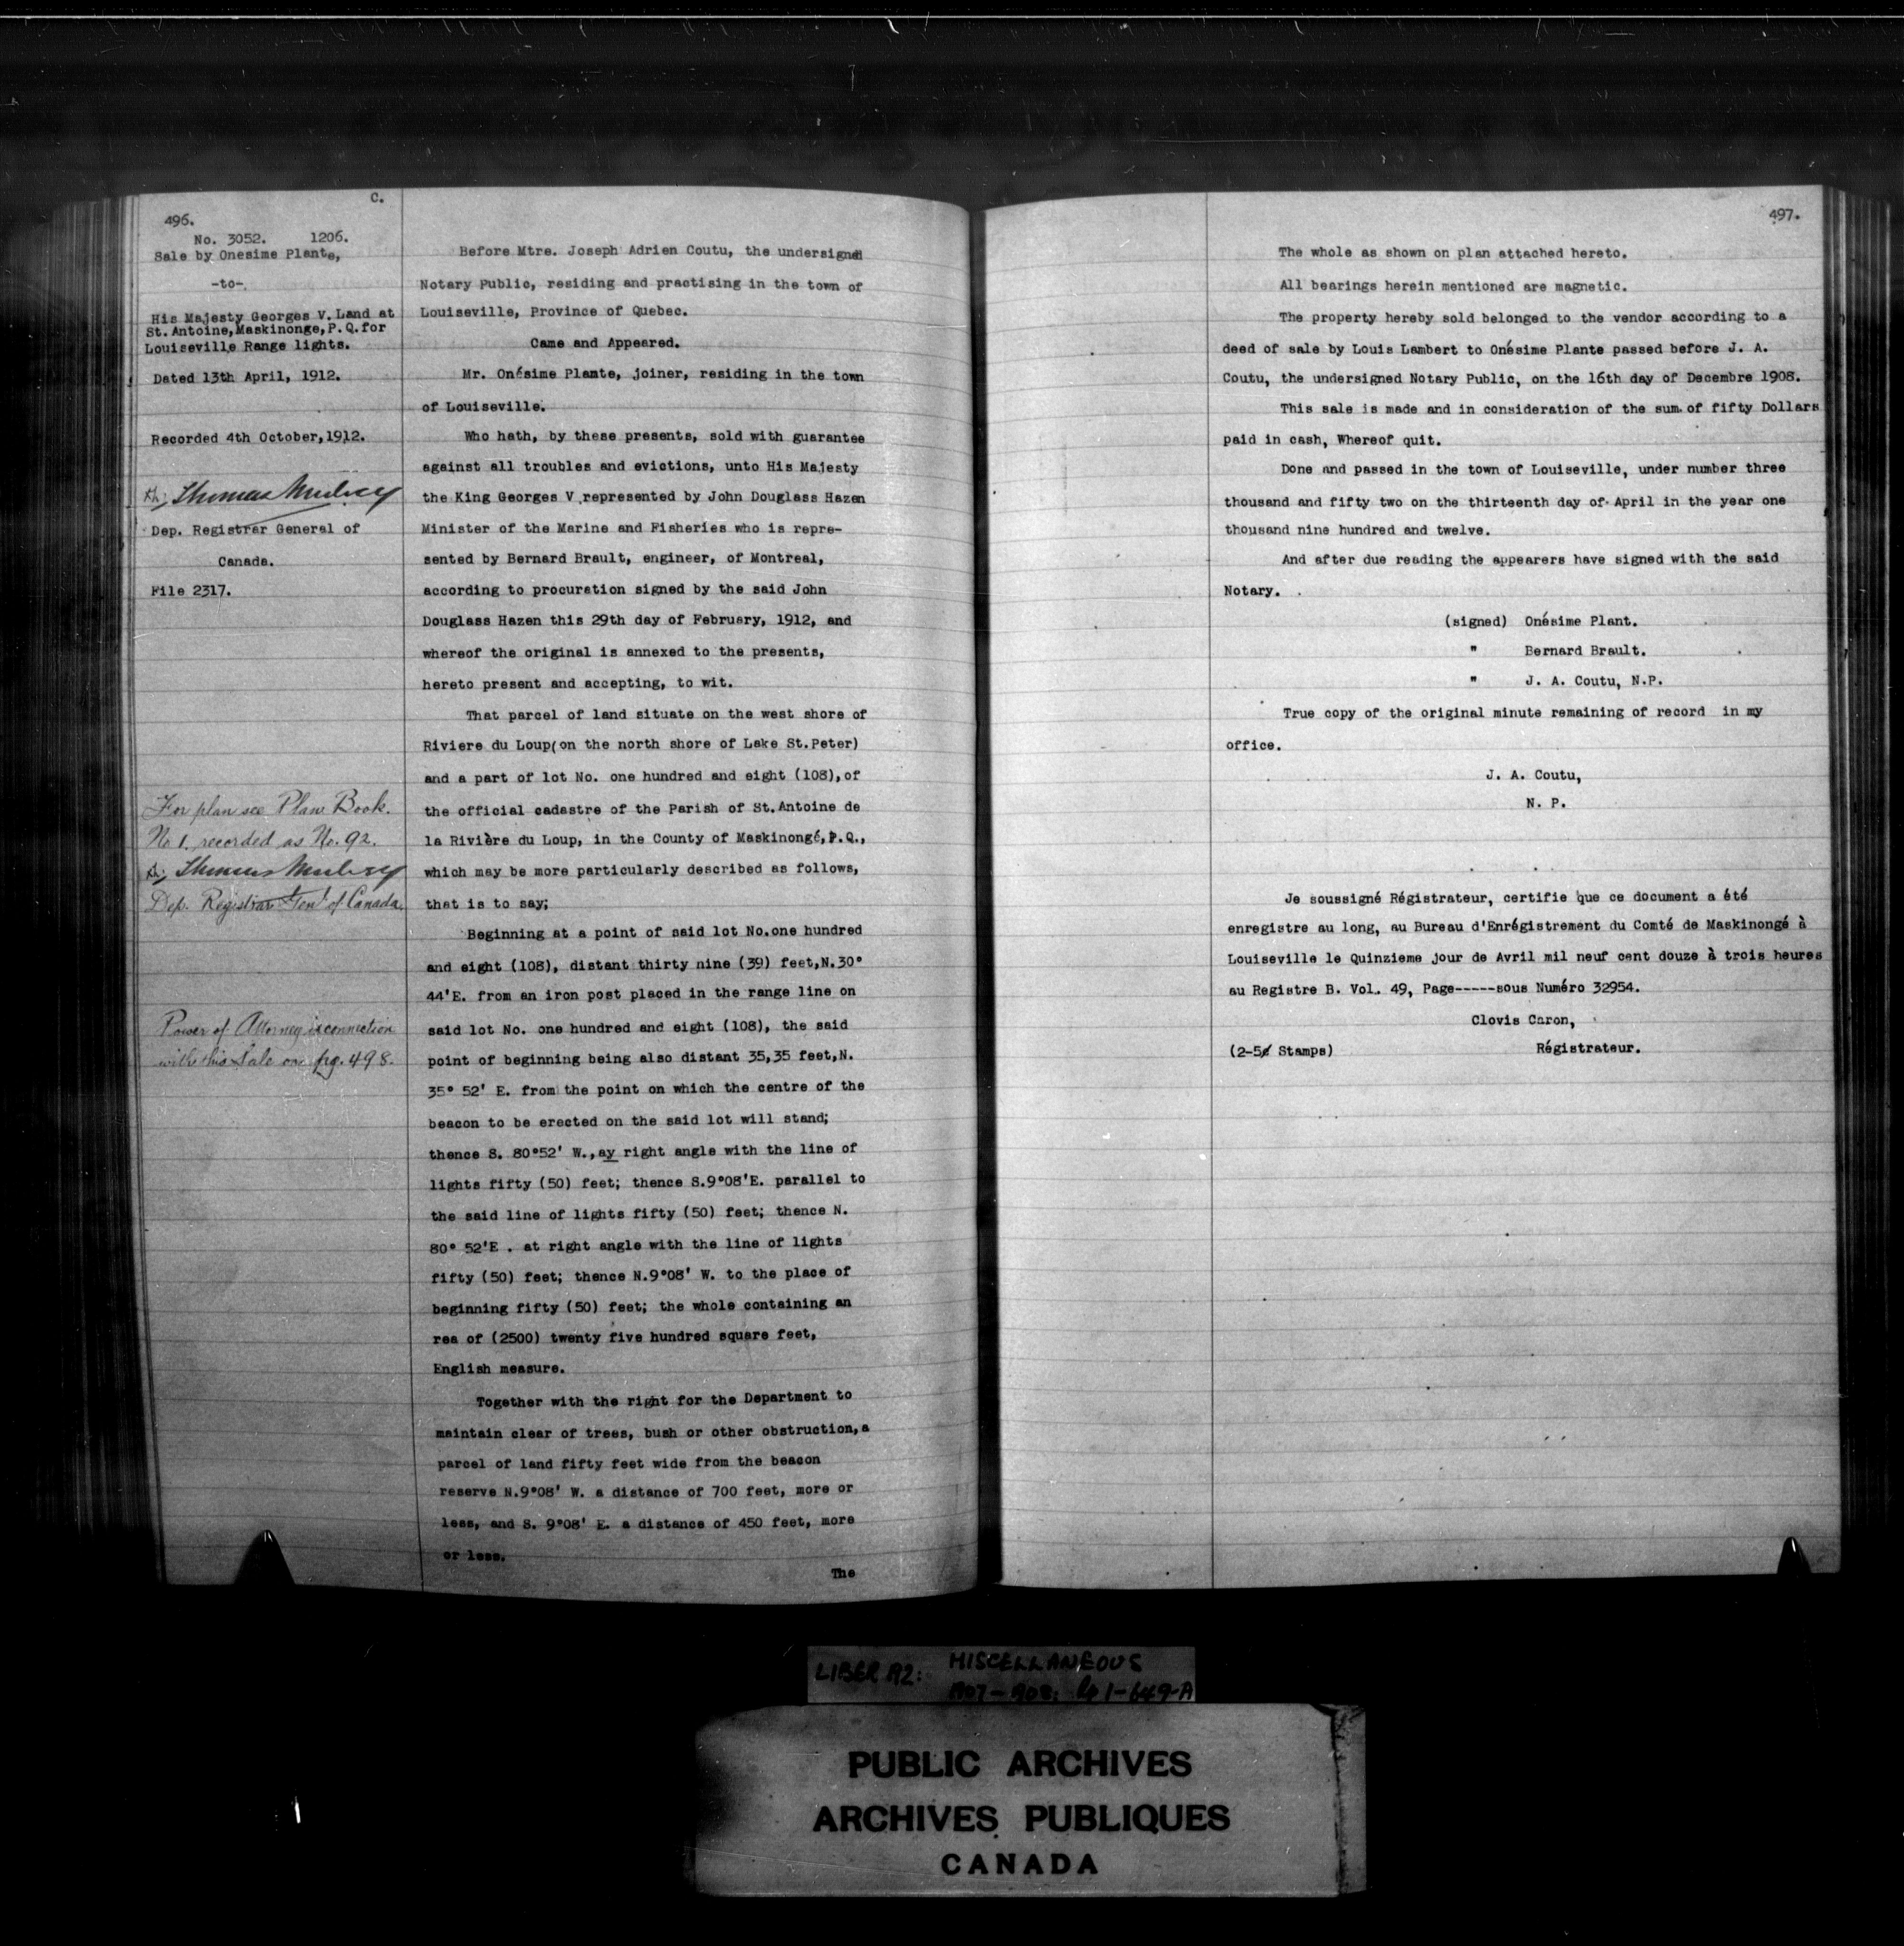 C.
496.
No. 3052. 1206.
Sale by Onesime Plante,
-to-
His Majesty Georges V. Land at
St. Antoine, Maskinonge, P.Q. for
Louiseville Range lights.
Dated 13th April, 1912.
Recorded 4th October, 1912.
Thomas Mulvey
Dep. Registrar General of
Canada.
File 2317.
For plan see Plan Book.
No 1. recorded as No. 92.
Thomas Mulvey
Dep. Registrar Gen'l of Canada.
Power of Attorney in connection
with this Sale on pg. 498.
Before Mtre. Joseph Adrien Coutu, the undersigned
Notary Public, residing and practising in the town of
Louiseville, Province of Quebec.
Came and Appeared.
Mr. Onésime Plante, joiner, residing in the town
of Louiseville.
Who hath, by these presents, sold with guarantee
against all troubles and evictions, unto His Majesty
the King Georges V represented by John Douglass Hazen
Minister of the Marine and Fisheries who is repre-
sented by Bernard Brault, engineer, of Montreal,
according to procuration signed by the said John
Douglass Hazen this 29th day of February, 1912, and
whereof the original is annexed to the presents,
hereto present and accepting, to wit.
That parcel of land situate on the west shore of
Riviere du Loup(on the north shore of Lake St.Peter)
and a part of lot No. one hundred and eight (108), of
the official cadastre of the Parish of St. Antoine de
la Rivière du Loup, in the County of Maskinongé, P.Q.,
which may be more particularly described as follows,
that is to say;
Beginning at a point of said lot No.one hundred
and eight (108), distant thirty nine (39) feet,N.30°
44'E. from an iron post placed in the range line on
said lot No. one hundred and eight (108), the said
point of beginning being also distant 35,35 feet,N.
35° 52' E. from the point on which the centre of the
beacon to be erected on the said lot will stand;
thence S. 80°52' W.,ay right angle with the line of
lights fifty (50) feet; thence S.9°08'E. parallel to
the said line of lights fifty (50) feet; thence N.
80° 52'E . at right angle with the line of lights
fifty (50) feet; thence N.9°08' W. to the place of
beginning fifty (50) feet; the whole containing an
rea of (2500) twenty five hundred square feet,
English measure.
Together with the right for the Department to
maintain clear of trees, bush or other obstruction,a
parcel of land fifty feet wide from the beacon
reserve N.9°08' W. a distance of 700 feet, more or
less, and S. 9°08' E. a distance of 450 feet, more
or less.
The
497.
The whole as shown on plan attached hereto.
All bearings herein mentioned are magnetic.
The property hereby sold belonged to the vendor according to a
deed of sale by Louis Lambert to Onésime Plante passed before J. A.
Coutu, the undersigned Notary Public, on the 16th day of Decembre 1908.
This sale is made and in consideration of the sum of fifty Dollars
paid in cash, Whereof quit.
Done and passed in the town of Louiseville, under number three
thousand and fifty two on the thirteenth day of April in the year one
thousand nine hundred and twelve.
And after due reading the appearers have signed with the said
Notary.
(signed) Onésime Plant.
" Bernard Brault.
" J. A. Coutu, N.P.
True copy of the original minute remaining of record in my
office.
J. A. Coutu,
N. P.
Je soussigné Régistrateur, certifie que ce document a été
enregistre au long, au Bureau d'Enrégistrement du Comté de Maskinongé à
Louiseville le Quinzieme jour de Avril mil neuf cent douze à trois heures
au Registre B. Vol. 49, Page-----sous Numéro 32954.
Clovis Caron,
(2-5¢ Stamps) Régistrateur.
LIBER A2: MISCELLANEOUS
PUBLIC ARCHIVES
ARCHIVES PUBLIQUES
CANADA